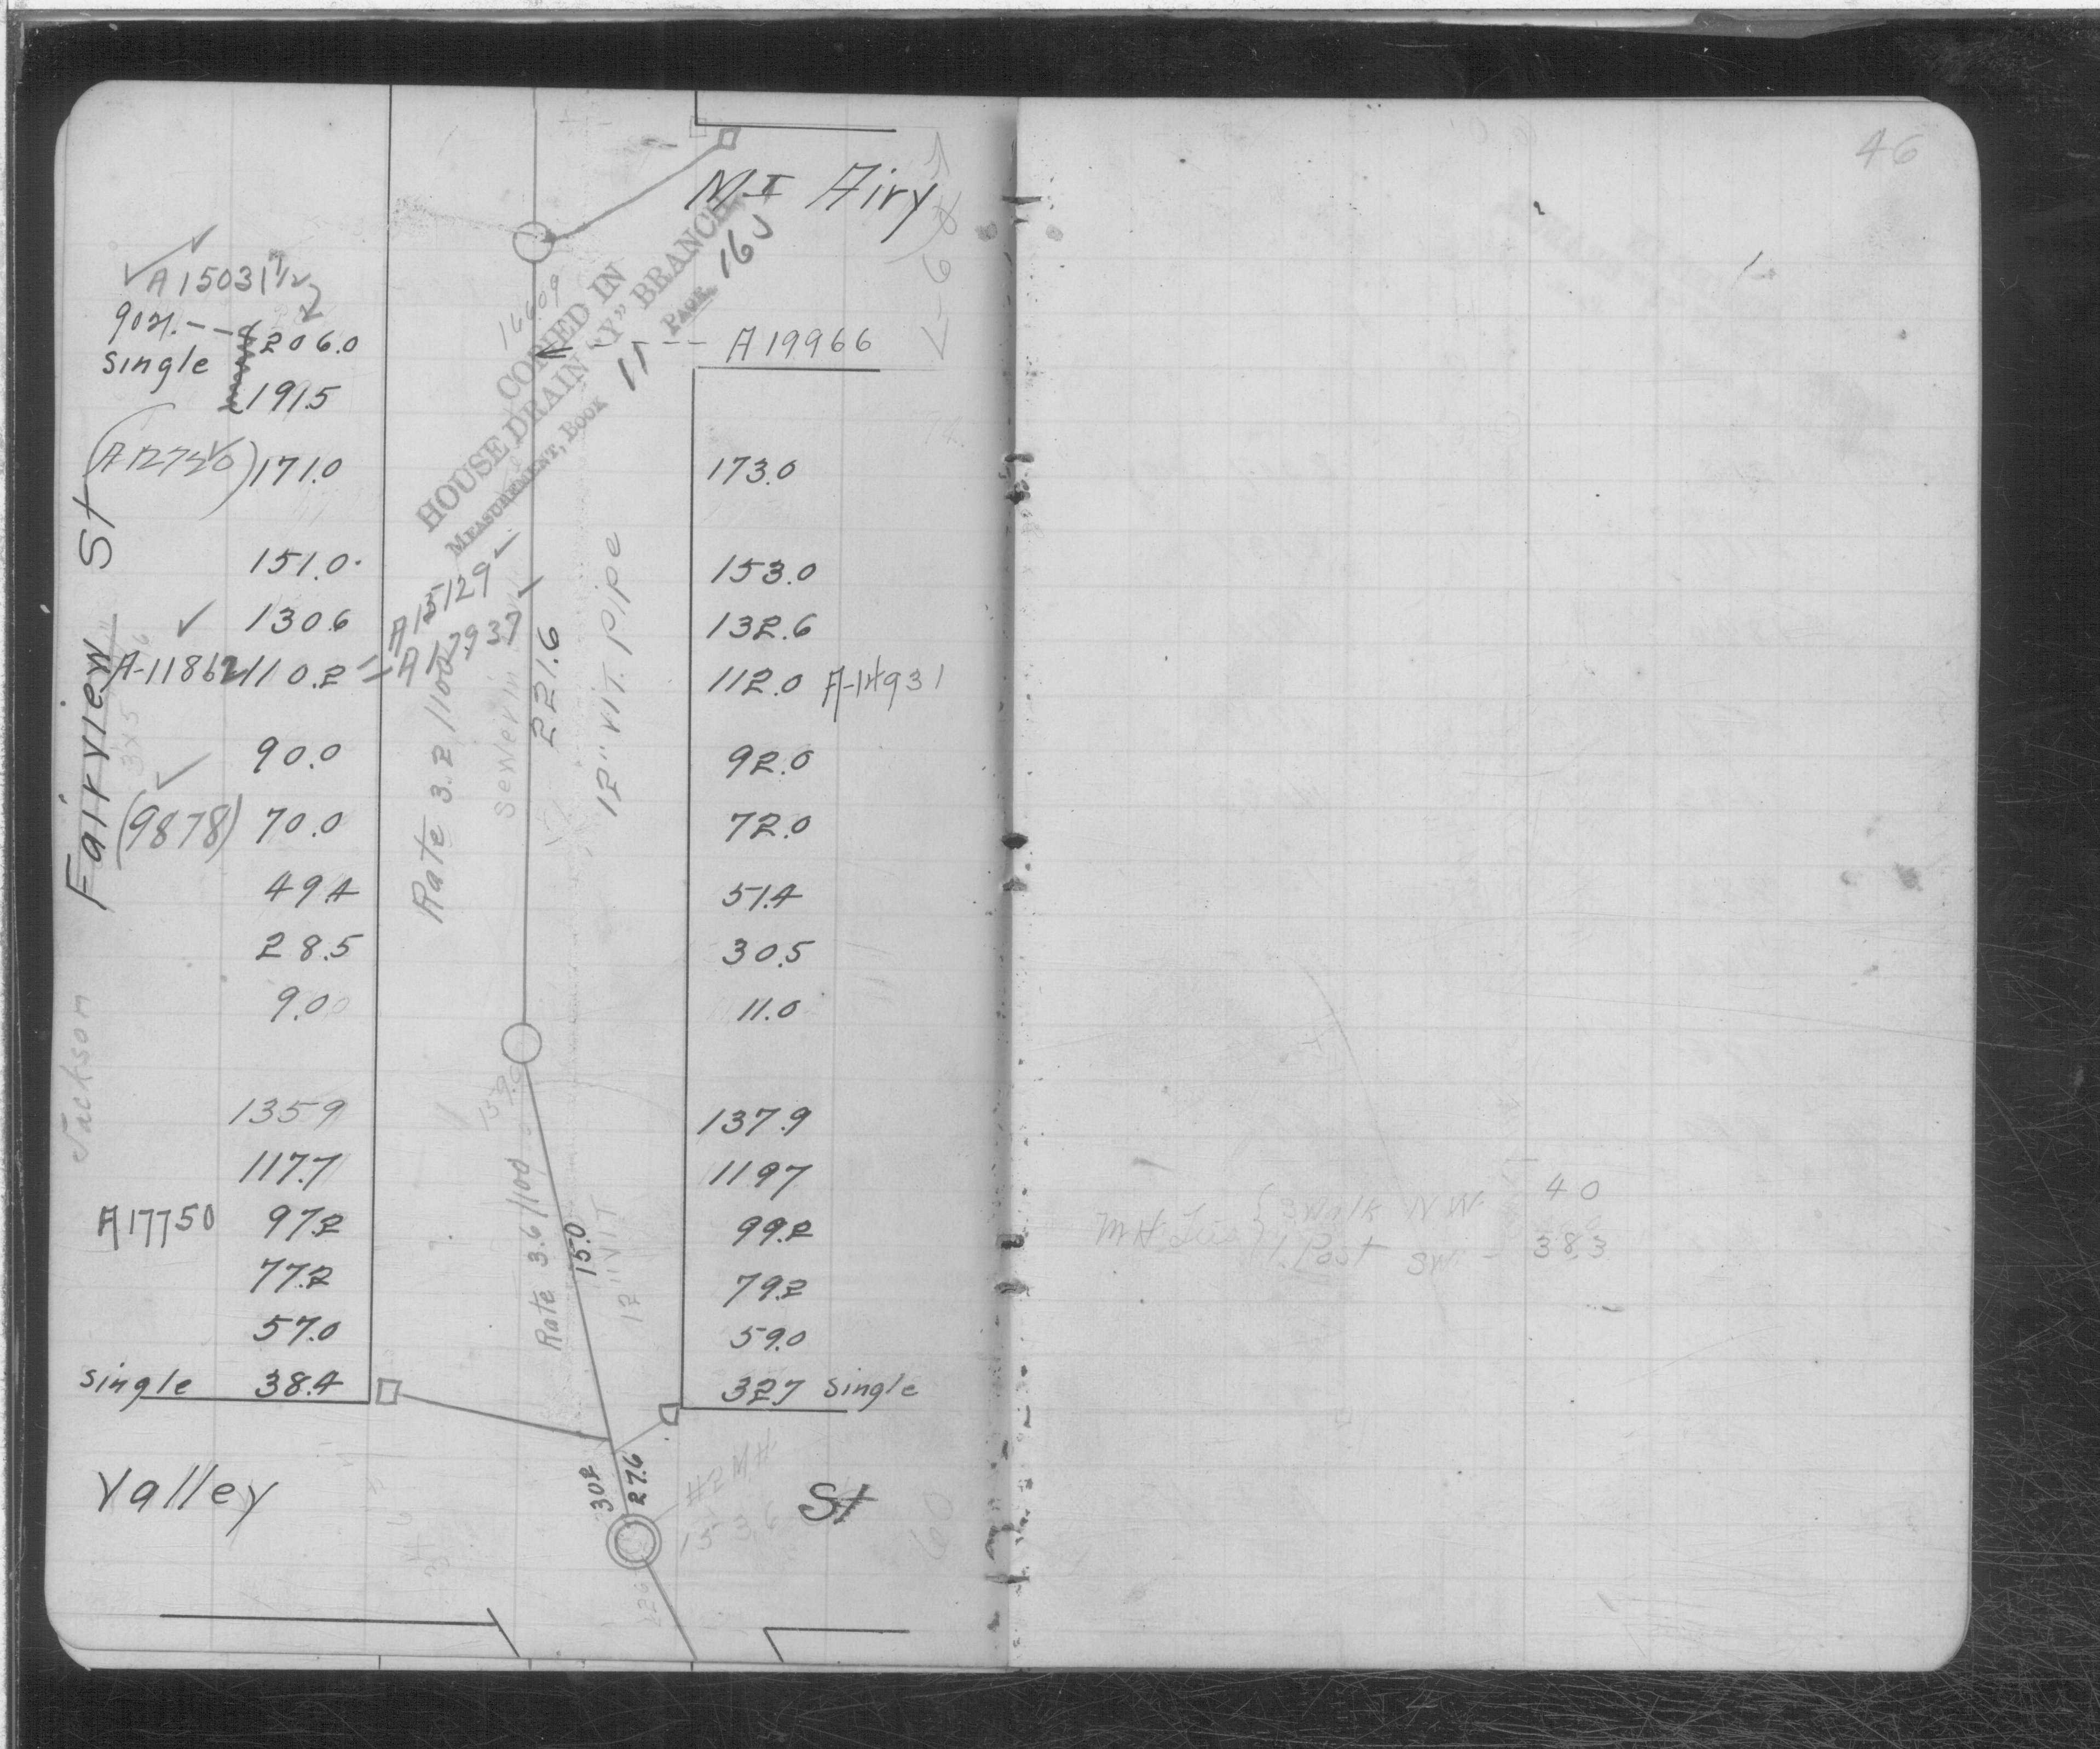 46
Mt Airy
A15031½
902. single 206.0
191.5
A 19966
COPIED IN
HOUSE DRAIN "Y" BRANCH
MEASUREMENT, BOOK 11 PAGE 16
171.0 173.0
Fairview St
151.0 153.0
130.6 132.6
A15129
A-11862 110.2 112.0 A-14931
221.6
12" Vit. Pipe
Rate 3.2/100
Sewer in
90.0 92.0
(9878) 70.0 72.0
49.4 51.4
28.5 30.5
9.0 11.0
Jackson
135.9 137.9
117.7 119.7
A17750 97.2 99.2
77.2 79.2
57.0 59.0
single 38.4 32.7 single
Rate 3.6/100
15.0
12" VIT
30.2
27.6
#2 MH
Valley St
60
40
Post SW - 38.3